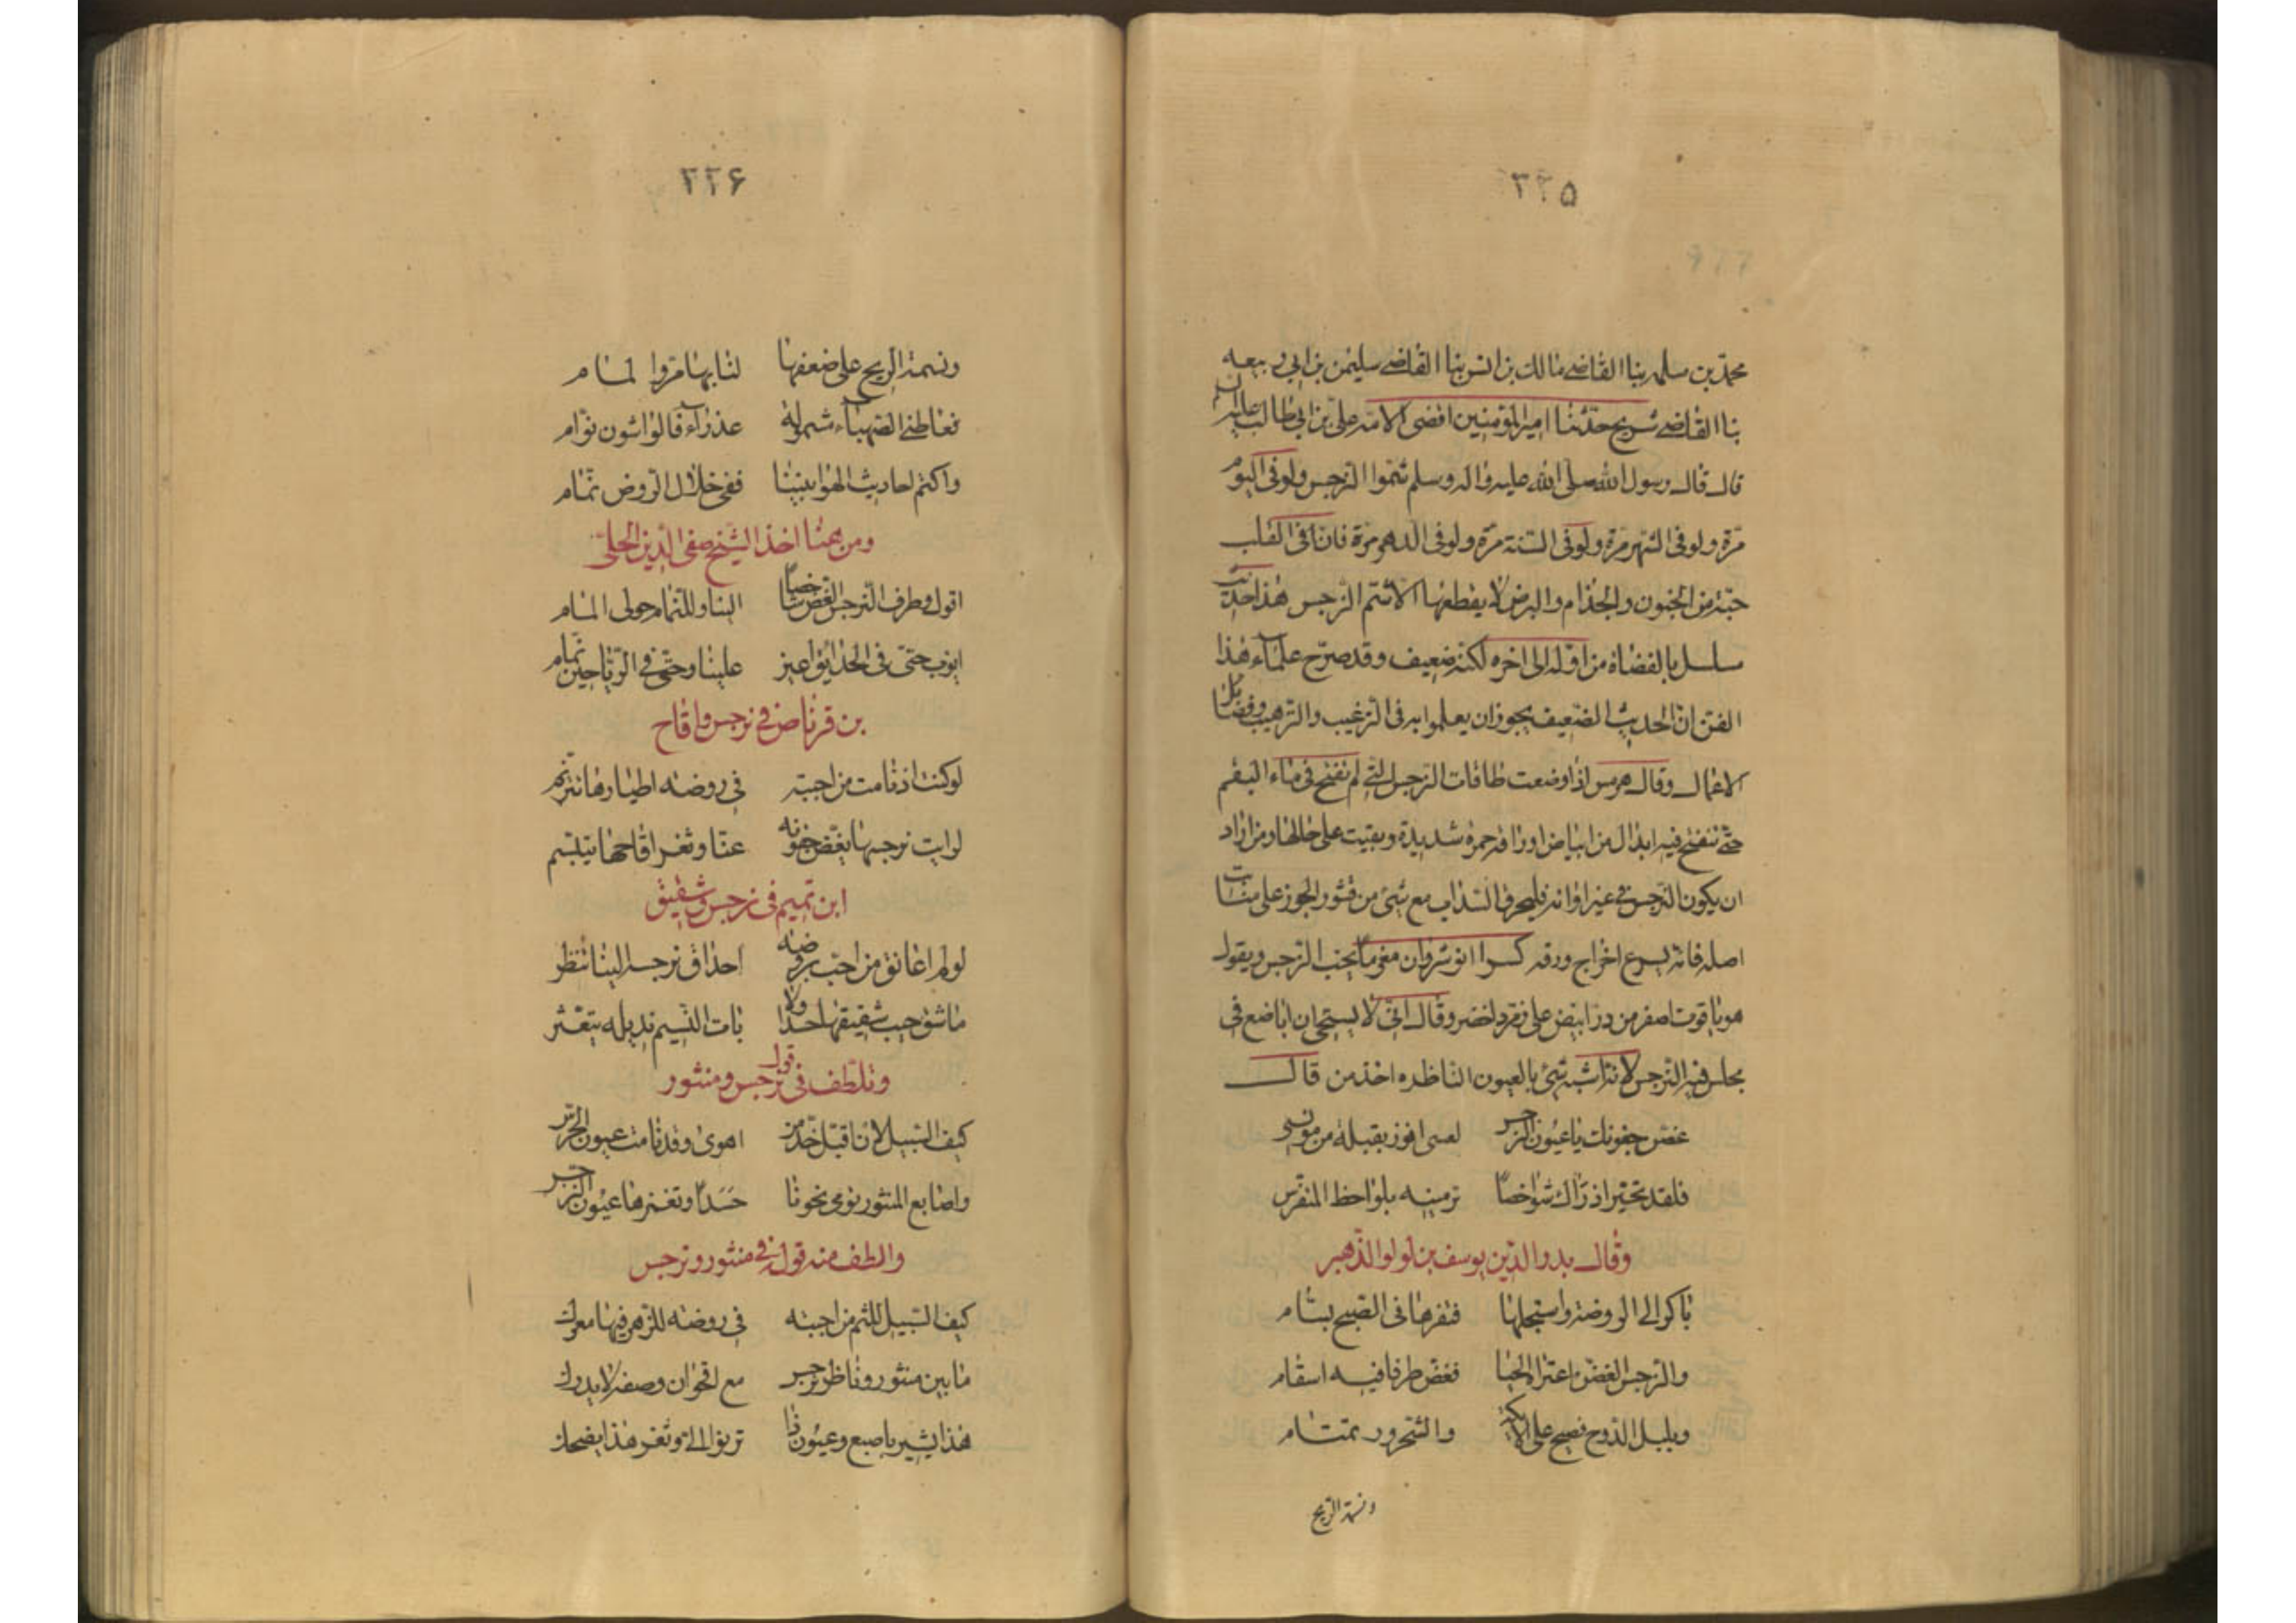 ۳۳۵
محمد بن سلمه بنا القاضے مالك بن انس بنا القاضے سليمن بن ابي ربيعه
بنا القاضے شريح حدثنا امير المؤمنين اقضى الامة على بن ابي طالب عليه السلم
قال قال رسول الله صلى الله عليه واله وسلم شموا النرجس ولو فى اليوم
مرة ولو فى الشهر مرة ولو فى السنة مرة ولو فى الدهر مرة فان فى القلب
حبة من الجنون والجذام والبرص لا يقطعها الا شم النرجس هذا حديث
مسلسل بالقضاة من اوله الى اخره لكنه ضعيف وقد صرح علماء هذا
الفن ان الحديث الضعيف يجوز ان يعملوا به فى الترغيب والترهيب وفضائل
الاعمال وقال هرمس اذا وضعت طاقات النرجس التے لم تفتح فى ماء البقم
حتے تنفتح فيه ابدال من ابياض اوراقه حمرة شديدة وبقيت على حالها ومن اراد
ان يكون النرجس فے غير اوانه فليحرق السذاب مع شئ من قشور الجوز على منبات
اصله فانه يسرع اخراج ورقه كسرا انوشروان مغرما بحب النرجس ويقول
هو ياقوت اصفر من در ابيض على زمرد اخضر وقال انى لا يستحى ان اباضع فى
مجلس فيه النرجس لانه اشبه شئ بالعيون الناظره اخذ من قال
غضى جفونك يا عيون النرجس لعسى افوز بقبلة من مونسى
فلقد تحير اذ راك شواخصا ترمينه بلواحظ المتفرس
وقال بدر الدين يوسف بن لولو الذهبى
باكر الى الروضة واستجلها فثغرها فى الصبح بسام
والنرجس الغض اعتراه الحيا فغض طرفا فيه اسقام
وبلبل الدوح فصيح على الايكة والشحرور تمتام
ونسمة الريح
۳۳۶
ونسمة الريح على ضعفها لنا بها مروا لمام
فعاطنے الصهباء شمولة عذراء فالواشون نوام
واكتم احاديث الهوا بيننا ففى خلال الروض نمام
ومن همنا اخذ الشيخ صفى الدين الحلى
اقول وطرف النرجس الغض شاخصا الينا وللنمام حولى المام
ايا رب حتى فى الحدائق اعين علينا وحتى فے الرياحين نمام
بن قرناص فے نرجس واقاح
لو كنت اذ نامت من احببته فى روضه اطيارها تترنم
لرايت نرجسها يغض جفونه عنا وثغر اقاحها يتبسم
ابن تميم فى نرجس وشقيق
لو لم اعانق من احب بروضه احداق نرجسه الينا تنظر
ما شق جيب شقيقها حسدا ولا بات النسيم بذيله يتعثر
وتلطف فى قوله نرجس ومنثور
كيف السبيل لان اقبل خد من اهوى وقد نامت عيون الحرس
واصابع المنثور تومى نحونا حسدا وتغمزها عيون النرجس
والطف منه قوله فے منثور ونرجس
كيف السبيل للثم من احببته فى روضه للزهر فيها معرك
ما بين منثور وناظر نرجس مع اقحوان وصفه لا يدرك
هذا يشير باصبع وعيون ذا ترنو الى وثغر هذا يضحك